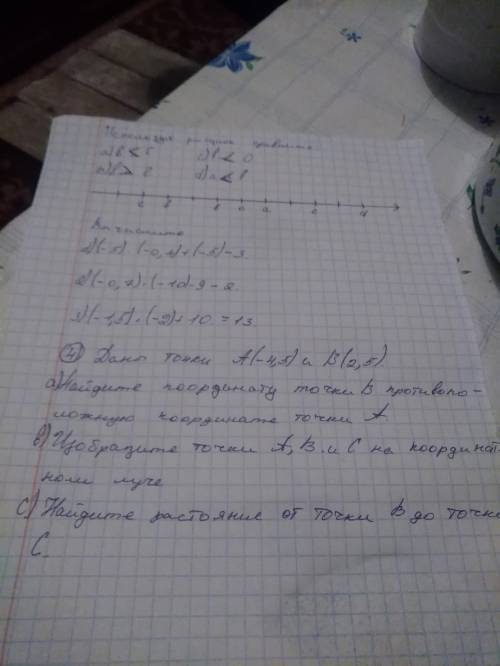 Используя рисунок сравните
a) b <
c) b < 0
d) a < b
Вычислите
1) (-5) · (-0,2) + (-5) - 3
2) (-0,7) · (-10) - 9 - 2
3) (-1,5) · (-2) + 10 = 13
④ Даны точки A(-4,5) и B(2,5)
a) Найдите координату точки B противопо-
ложную координате точки A.
b) Изобразите точки A, B и C на координат-
ном луче
c) Найдите растояние от точки B до точки
C.